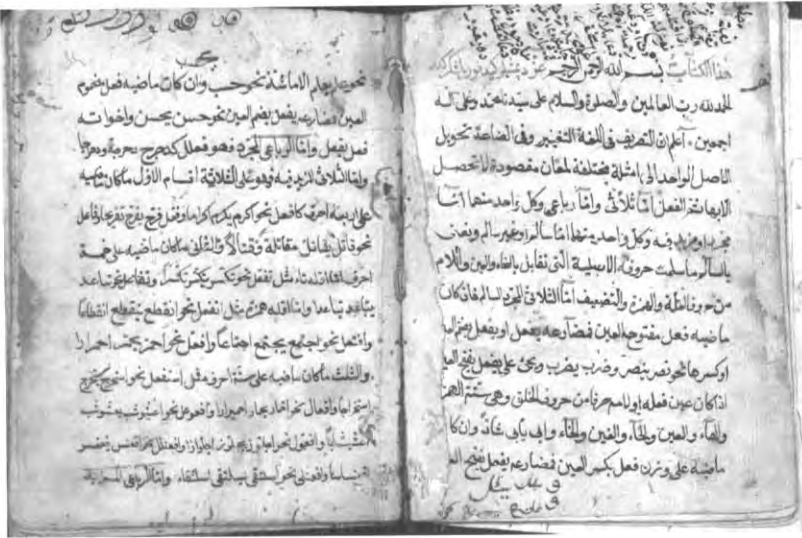 هذا الكتاب بسم الله الرحمن الرحيم
الحمد لله رب العالمين والصلوة والسلام على سيدنا محمد وعلى آله
اجمعين . اعلم ان التصريف فى اللغة التغيير وفى الصناعة تحويل
الاصل الواحد الى امثلة مختلفة لمعان مقصودة لا تحصل
الا بها ثم الفعل اما ثلاثى واما رباعى وكل واحد منهما اما
مجرد او مزيد فيه وكل واحد منهما اما سالم او غير سالم ونعنى
بالسالم ما سلمت حروفه الاصلية التى تقابل بالفاء والعين واللام
من حروف العلة والهمزة والتضعيف اما الثلاثى المجرد السالم فان كان
ماضيه فعل مفتوح العين فمضارعه يفعل او يفعل بضم العين
او كسرها نحو نصر ينصر وضرب يضرب ويجئ على يفعل بفتح العين
اذا كان عين فعله او لامه حرفا من حروف الحلق وهى ستة الهمزة
والهاء والعين والحاء والغين والخاء وابى يابى شاذ وان كان
ماضيه على وزن فعل بكسر العين فمضارعه يفعل بفتح العين
نحو علم يعلم الا ما شذ نحو حسب وان كان ماضيه فعل مضموم
العين فمضارعه يفعل بضم العين نحو حسن يحسن واخواته
فعل يفعل واما الرباعى المجرد فهو فعلل كدحرج دحرجة ودحراجا
واما الثلاثى المزيد فيه فهو على الثلاثة اقسام الاول ما كان ماضيه
على اربعة احرف كافعل نحو اكرم يكرم اكراما وفعل نحو فرح يفرح تفريحا وفاعل
نحو قاتل يقاتل مقاتلة وقتالا والثانى ما كان ماضيه على خمسة
احرف اما اوله تاء مثل تفعل نحو تكسر يتكسر تكسرا وتفاعل نحو تباعد
يتباعد تباعدا واما اوله همزة مثل انفعل نحو انقطع ينقطع انقطاعا
وافتعل نحو اجتمع يجتمع اجتماعا وافعل نحو احمر يحمر احمرارا
والثالث ما كان ماضيه على ستة احرف مثل استفعل نحو استخرج يستخرج
استخراجا وافعال نحو احمار يحمار احميرارا وافعوعل نحو اعشوشب يعشوشب
اعشيشابا وافعول نحو اجلوز يجلوز اجلوازا وافعنلل نحو اقعنسس يقعنسس
اقعنساسا وافعنلى نحو اسلنقى يسلنقى اسلنقاء واما الرباعى المزيد فيه